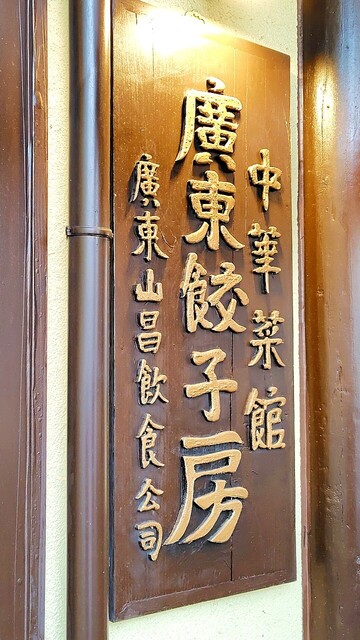 中華菜館
廣東餃子房
廣東山昌飲食公司